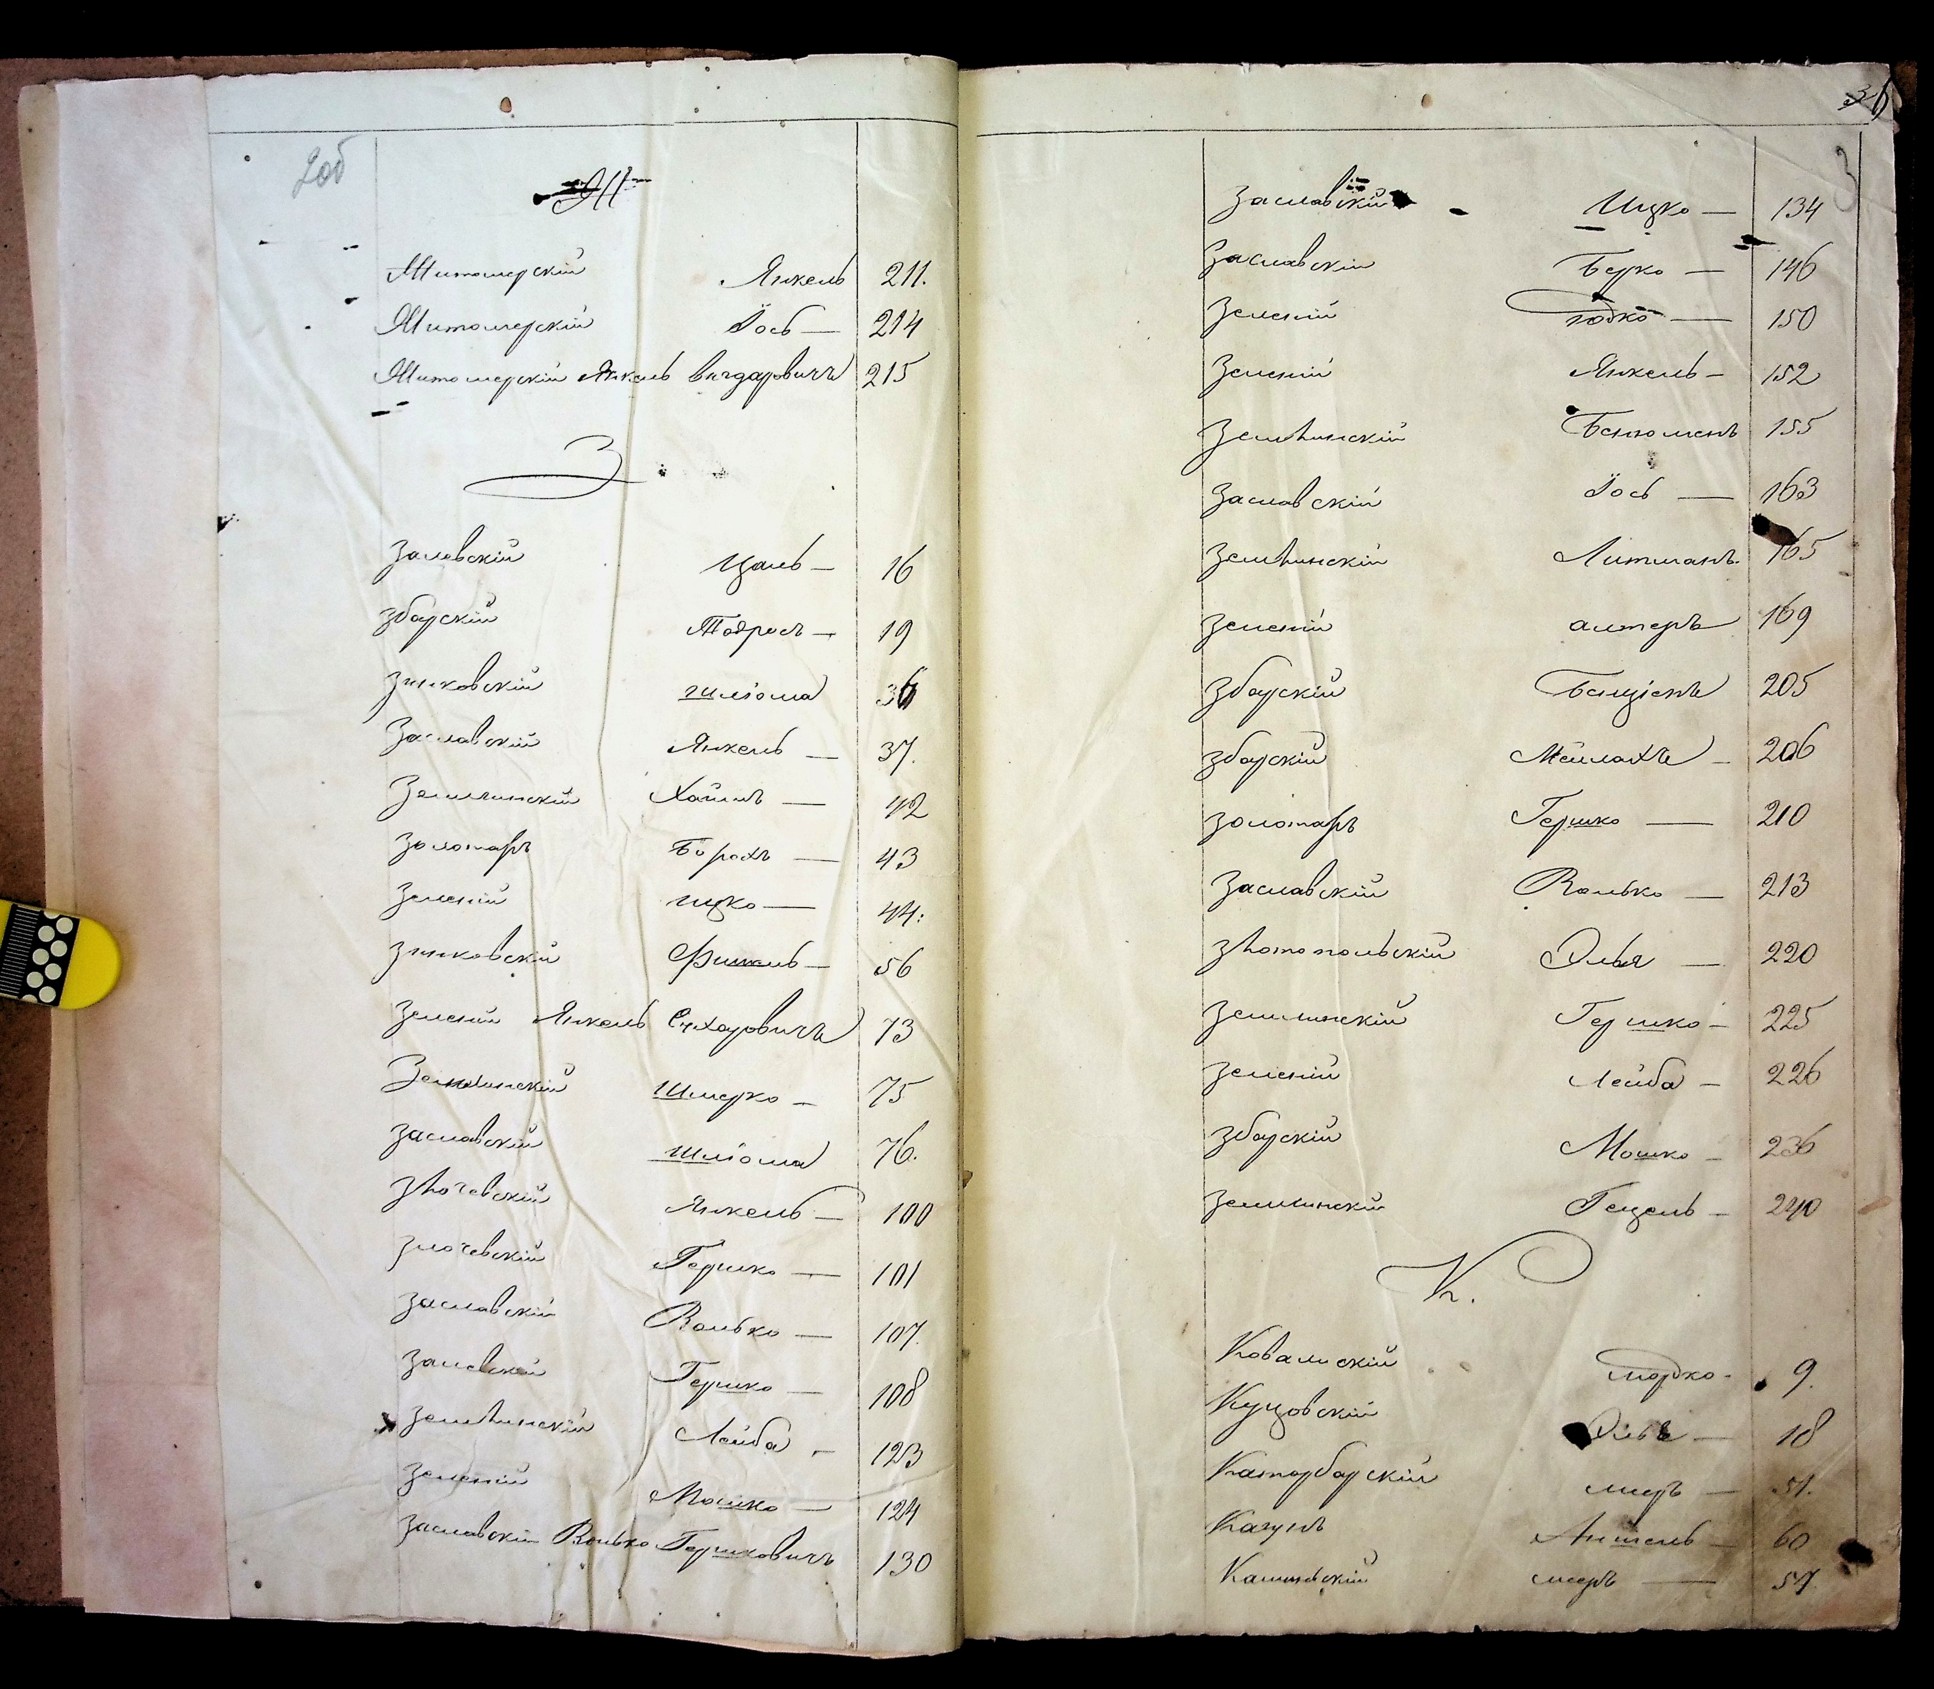 2об
Ж
Житомерскій Янкель 211.
Житомерскій Іось — 214
Житомерскій Янкель 215
З
Залевскій Цаль — 16
Збарскій Тодрось — 19
Зинковскій Шліома 36
Заславскій Янкель — 37.
Земличинскій Хаимъ — 42
Золотарь Борохъ — 43
Зеленій Ицко — 44.
Зинковскій Фишель — 56
Зеленій Янкель Сухаровичъ 73
Земшинскій Шмерко — 75
Заславскій Шліома 76.
Злочевскій Янкель — 100
Злочевскій Гершко — 101
Заславскій Волько — 107.
Залевскій Гершко — 108
Земшинскій Лейба — 123
Зеленій Мошко — 124
Заславскій Волько Гершковичъ 130
3
Заславскій Ицко — 134
Заславскій Берко — 146
Зеленій Юдко — 150
Зеленій Янкель — 152
Земшинскій Беньоменъ 155
Заславскій Іось — 163
Земшинскій Литманъ. 165
Зеленій Алтеръ 169
Збарскій Бенціенъ 205
Збарскій Мейлахъ — 206
Золотарь Гершко — 210
Заславскій Волько — 213
Злотопольскій Эльи — 220
Земшинскій Гершко — 225
Зеленій Лейба — 226
Збарскій Мошко — 236
Земшинскій Гецель — 240
К.
Ковальскій Мордко — 9.
Куцовскій Эль — 18
Каторбарскій Мееръ — 51.
Кагунъ Аншель — 60
Мееръ — 57.